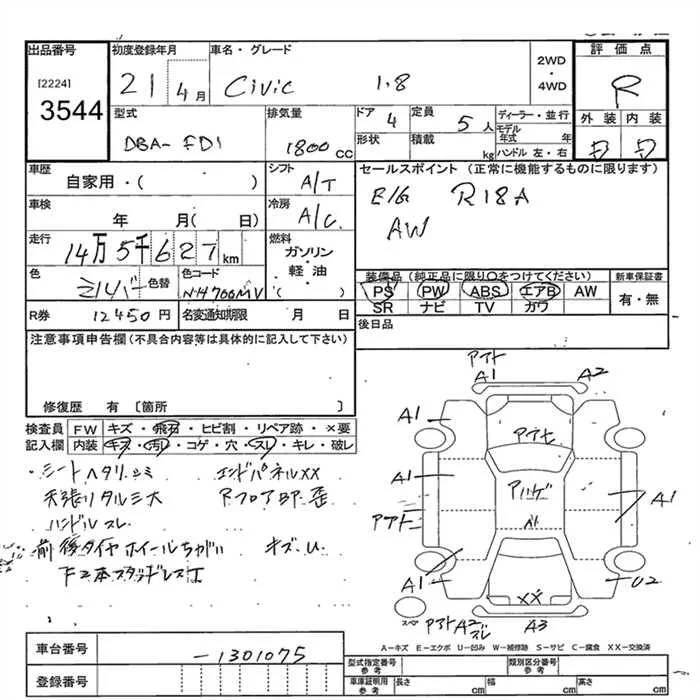 出品番号 初度登録年月 車名・グレード 評価点
[2224] 21 4月 Civic 1.8 2WD・4WD R
3544
型式 排気量 ドア 4 定員 5人 ディーラー・並行 外装 内装
DBA-FD1 1800cc 形状 積載 kg モデル年式 年 ハンドル 左・右 D D
車歴 シフト セールスポイント(正常に機能するものに限ります)
自家用・( ) A/T E/G R18A
車検 冷房 AW
年 月( 日) A/C
走行 燃料
14万5千627km ガソリン・軽油
色 色替 色コード ( ) 装備品(純正品に限り○をつけてください) 新車保証書
シルバー NH700MV PS PW ABS エアB AW 有・無
SR ナビ TV カワ
R券 12450円 名変通知期限 月 日 後日品
注意事項申告欄(不具合内容等は具体的に記入して下さい)
修復歴 有 〔箇所 〕
検査員 FW キズ・飛石・ヒビ割・リペア跡・×要
記入欄 内装 キズ・汚れ・コゲ・穴・スレ・キレ・破レ
・シートヘタリ、シミ エンドパネルXX
天張りタルミ大 Rフロア 歪
ハンドルスレ
前後タイヤホイールちがい キズ、U
F2本スタッドレス
アアト
A1 A2
A1
A1 A1
アアト
アハゲ
A1 U2
XX
スペア アアト A2 スレ A3
A-キズ E-エクボ U-凹み W-補修跡 S-サビ C-腐食 XX-交換済
車台番号 -1301075
型式指定番号 参考 類別区分番号 参考
登録番号 車庫証明用 参考 長さ cm 幅 cm 高さ cm